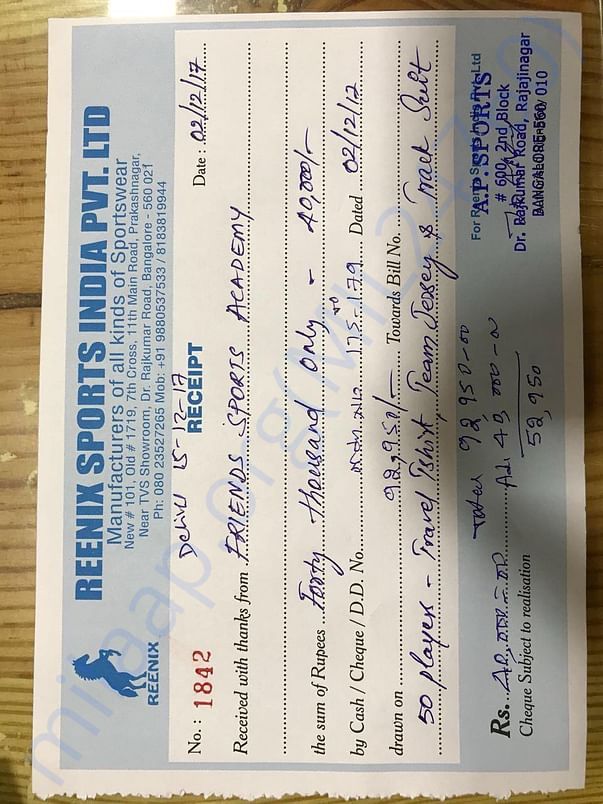 REENIX SPORTS INDIA PVT. LTD
Manufacturers of all kinds of Sportswear
New # 101, Old # 1719, 7th Cross, 11th Main Road, Prakashnagar,
Near TVS Showroom, Dr. Rajkumar Road, Bangalore - 560 021
Ph: 080 23527265 Mob: +91 9880537533 / 8183819944
REENIX
15-12-17
No.: 1842
RECEIPT
Date: 02/12/17
Received with thanks from FRIENDS SPORTS ACADEMY
the sum of Rupees Forty thousand only - 40,000/-
by Cash / Cheque / D.D. No. Dated 02/12/12
drawn on 92,950/- Towards Bill No.
50 players - Travel Tshirt, Team Jersey & Track Suit
Total 92950-00
Rs.
52,950
Cheque Subject to realisation
A.P. SPORTS
# 600, 2nd Block
Dr. Rajkumar Road, Rajajinagar
BANGALORE-560 010
milaap.org